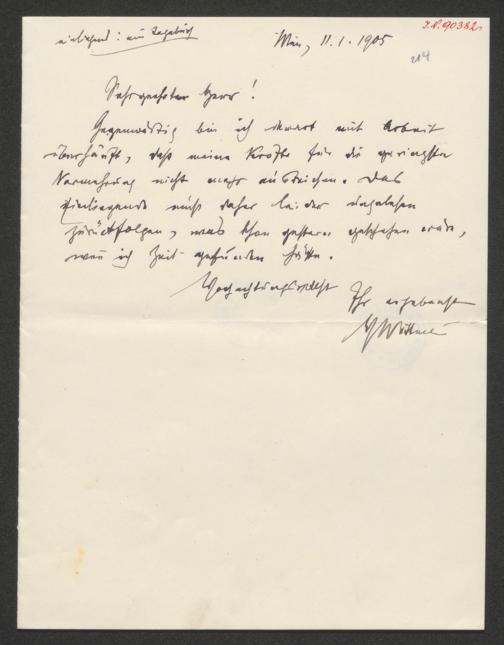 I.N. 90382
einliegend: ein Tagebuch
Wien, 11.1.1905
214
Sehr geehrter Herr!
Gegenwärtig bin ich derart mit Arbeit
überhäuft, daß meine Kräfte für die geringste
Vermehrung nicht mehr ausreichen. Das
Einliegende muß daher leider ungelesen
zurückfolgen, was schon gestern geschehen wäre,
wenn ich Zeit gefunden hätte.
Hochachtungsvollst
Ihr ergebenster